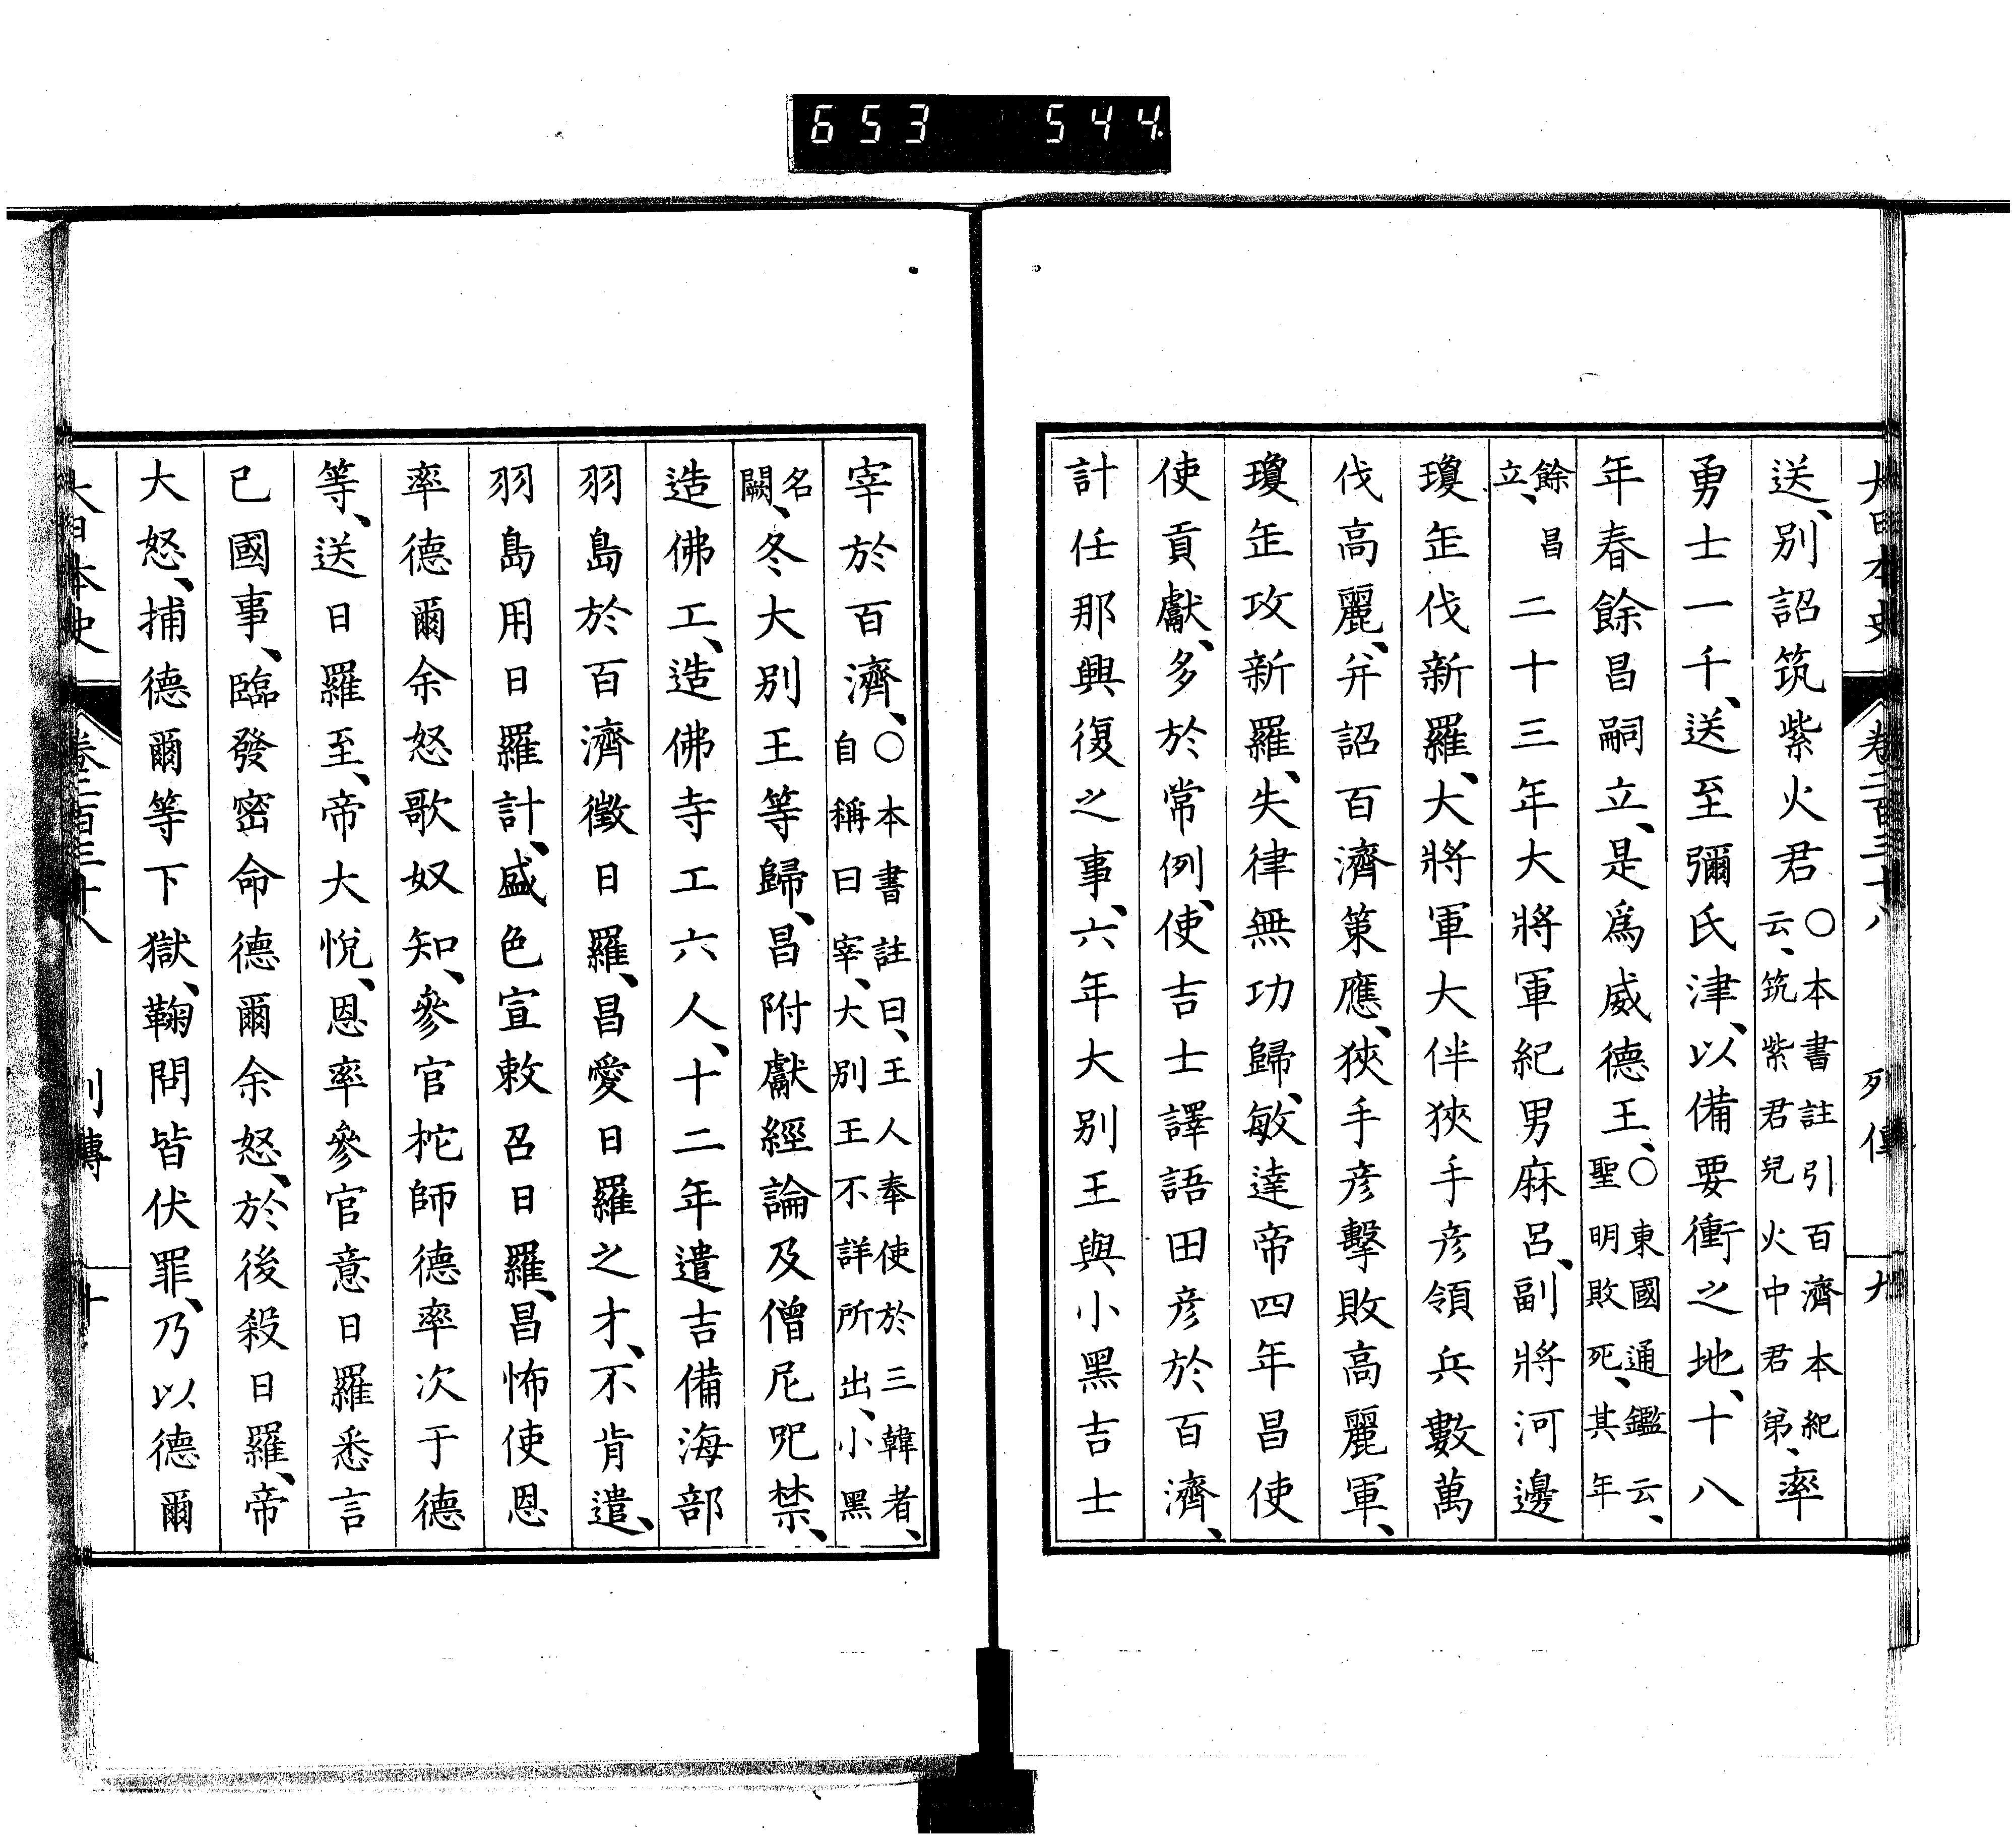 653 544
大日本史 卷二百三十八 列傳 九
送、別詔筑紫火君○本書註引百濟本紀云、筑紫君兒火中君弟、率
勇士一千、送至彌氏津、以備要衝之地、十八
年春餘昌嗣立、是爲威德王、○東國通鑑云、聖明敗死、其年
餘昌立、二十三年大將軍紀男麻呂、副將河邊
瓊缶伐新羅、大將軍大伴狹手彦領兵數萬
伐高麗、幷詔百濟策應、狹手彦擊敗高麗軍、
瓊缶攻新羅、失律無功歸、敏達帝四年昌使
使貢獻、多於常例、使吉士譯語田彦於百濟、
計任那興復之事、六年大別王與小黑吉士
宰於百濟、○本書註曰、王人奉使於三韓者、自稱曰宰、大別王不詳所出、小黑
名闕、冬大別王等歸、昌附獻經論及僧尼咒禁、
造佛工、造佛寺工六人、十二年遣吉備海部
羽島於百濟徵日羅、昌愛日羅之才、不肯遣、
羽島用日羅計、盛色宣敕召日羅、昌怖使恩
率德爾余怒歌奴知、參官柁師德率次于德
等、送日羅至、帝大悅、恩率參官意日羅悉言
己國事、臨發密命德爾余怒、於後殺日羅、帝
大怒、捕德爾等下獄、鞠問皆伏罪、乃以德爾
大日本史 卷二百三十八 列傳 十